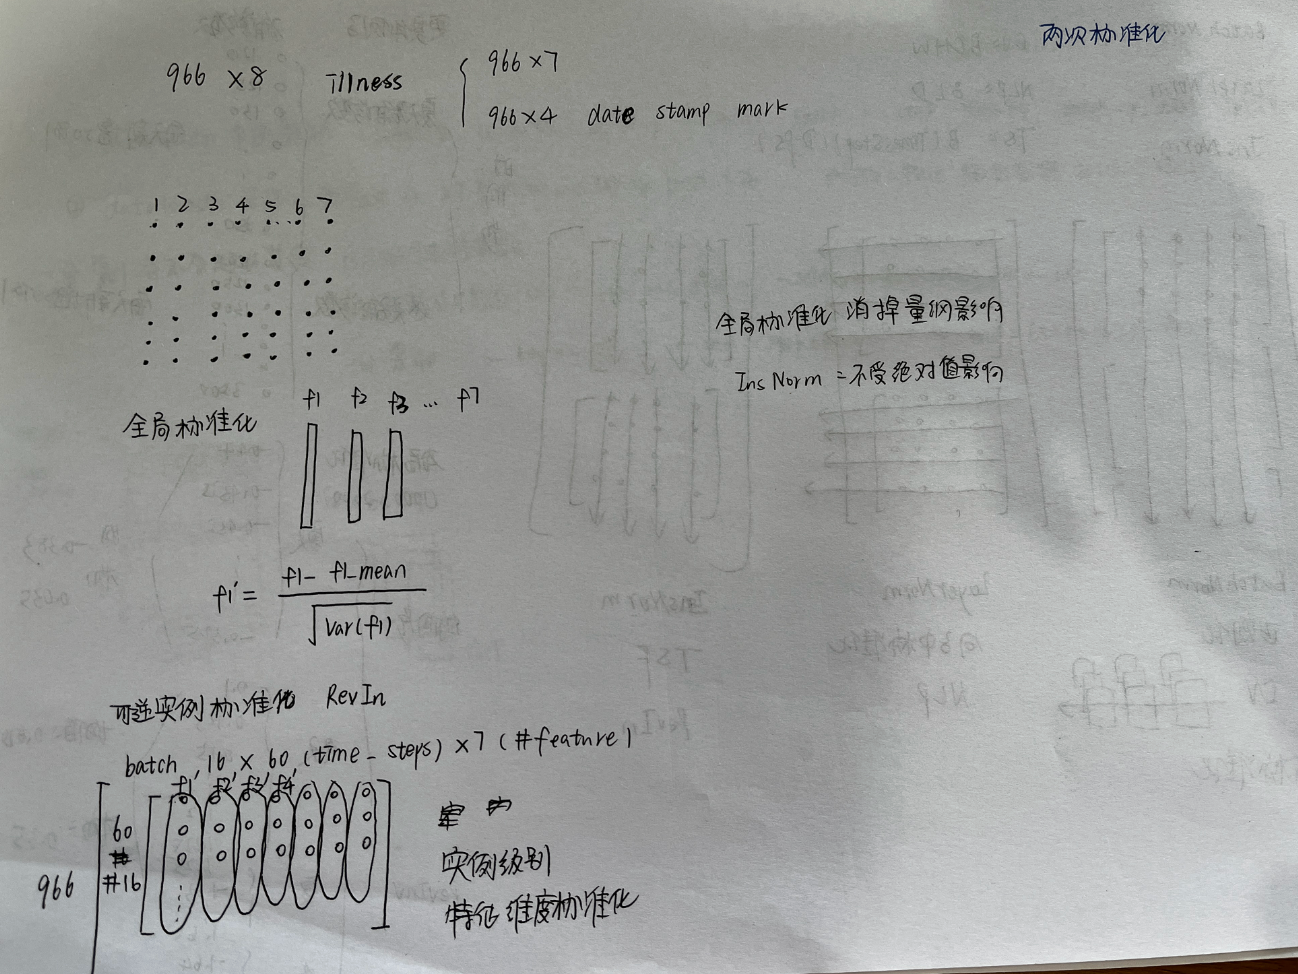 两次标准化
966 × 8 Illness
966 × 7
966 × 4 date stamp mark
1 2 3 4 5 6 7
全局标准化 消掉量纲影响
Ins Norm = 不受绝对值影响
f1 f2 f3 ... f7
全局标准化
f1' = f1 - f1_mean
√var(f1)
可逆实例标准化 RevIn
batch, 16 × 60, (time_steps) × 7 (#feature)
f1' f2' f3' f4'
60
#16
966
实例级别
特征维度标准化